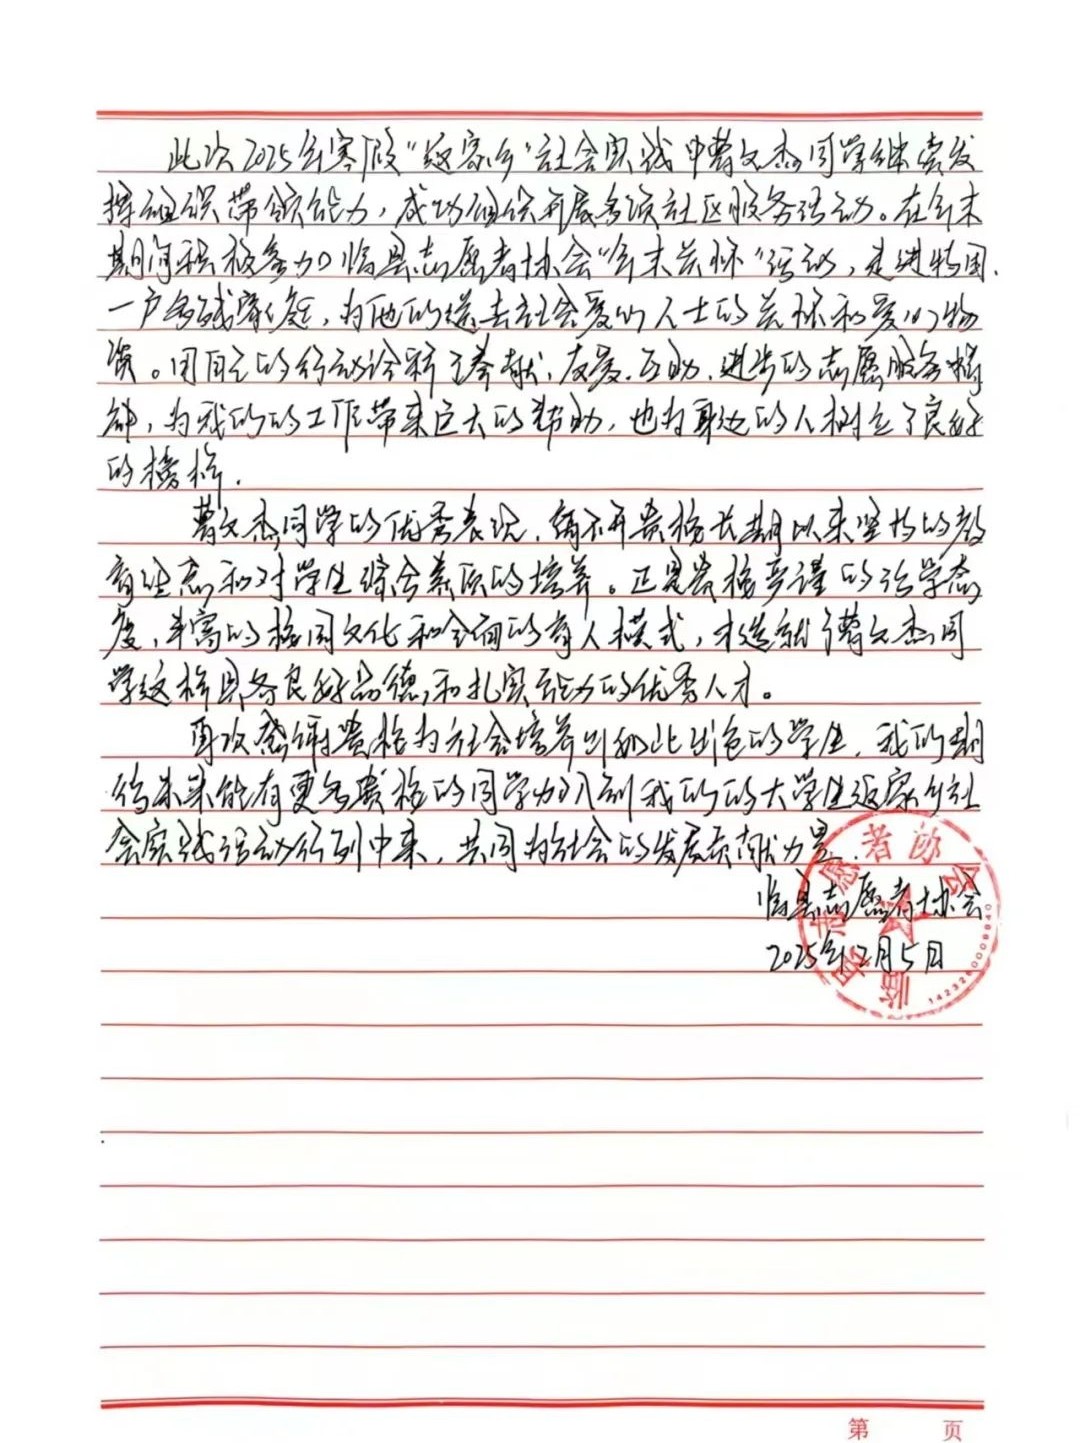 此次2025年寒假“返家乡”社会实践中曹文杰同学继续发
挥组织带领能力，成功组织开展多项社区服务活动。在年末
期间积极参加临县志愿者协会“年末关怀”活动，走进特困、
一户多残家庭，为他们送去社会爱心人士的关怀和爱心物
资。用自己的行动诠释了奉献、友爱、互助、进步的志愿服务精
神，为我们的工作带来巨大的帮助，也为身边的人树立了良好
的榜样.
曹文杰同学的优秀表现，离不开贵校长期以来坚持的教
育生态和对学生综合素质的培养。正是贵校严谨的治学态
度，丰富的校园文化和全面的育人模式，才造就了曹文杰同
学这样具备良好品德，和扎实能力的优秀人才。
再次感谢贵校为社会培养出如此出色的学生，我们期
待未来能有更多贵校的同学加入到我们的大学生返家乡社
会实践活动行列中来，共同为社会的发展贡献力量.
临县志愿者协会
2025年2月5日
临县志愿者协会
第 页